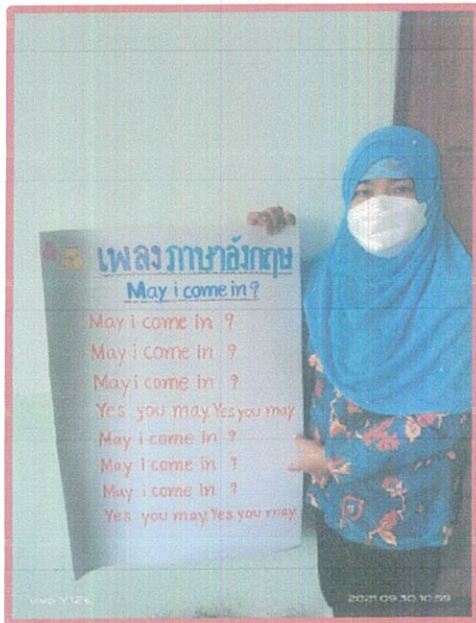 เพลงภาษาอังกฤษ
May i come in ?
May i come in ?
May i come in ?
May i come in ?
Yes you may. Yes you may
May i come in ?
May i come in ?
May i come in ?
Yes you may. Yes you may
vivo Y12s
2021.09.30 10:59